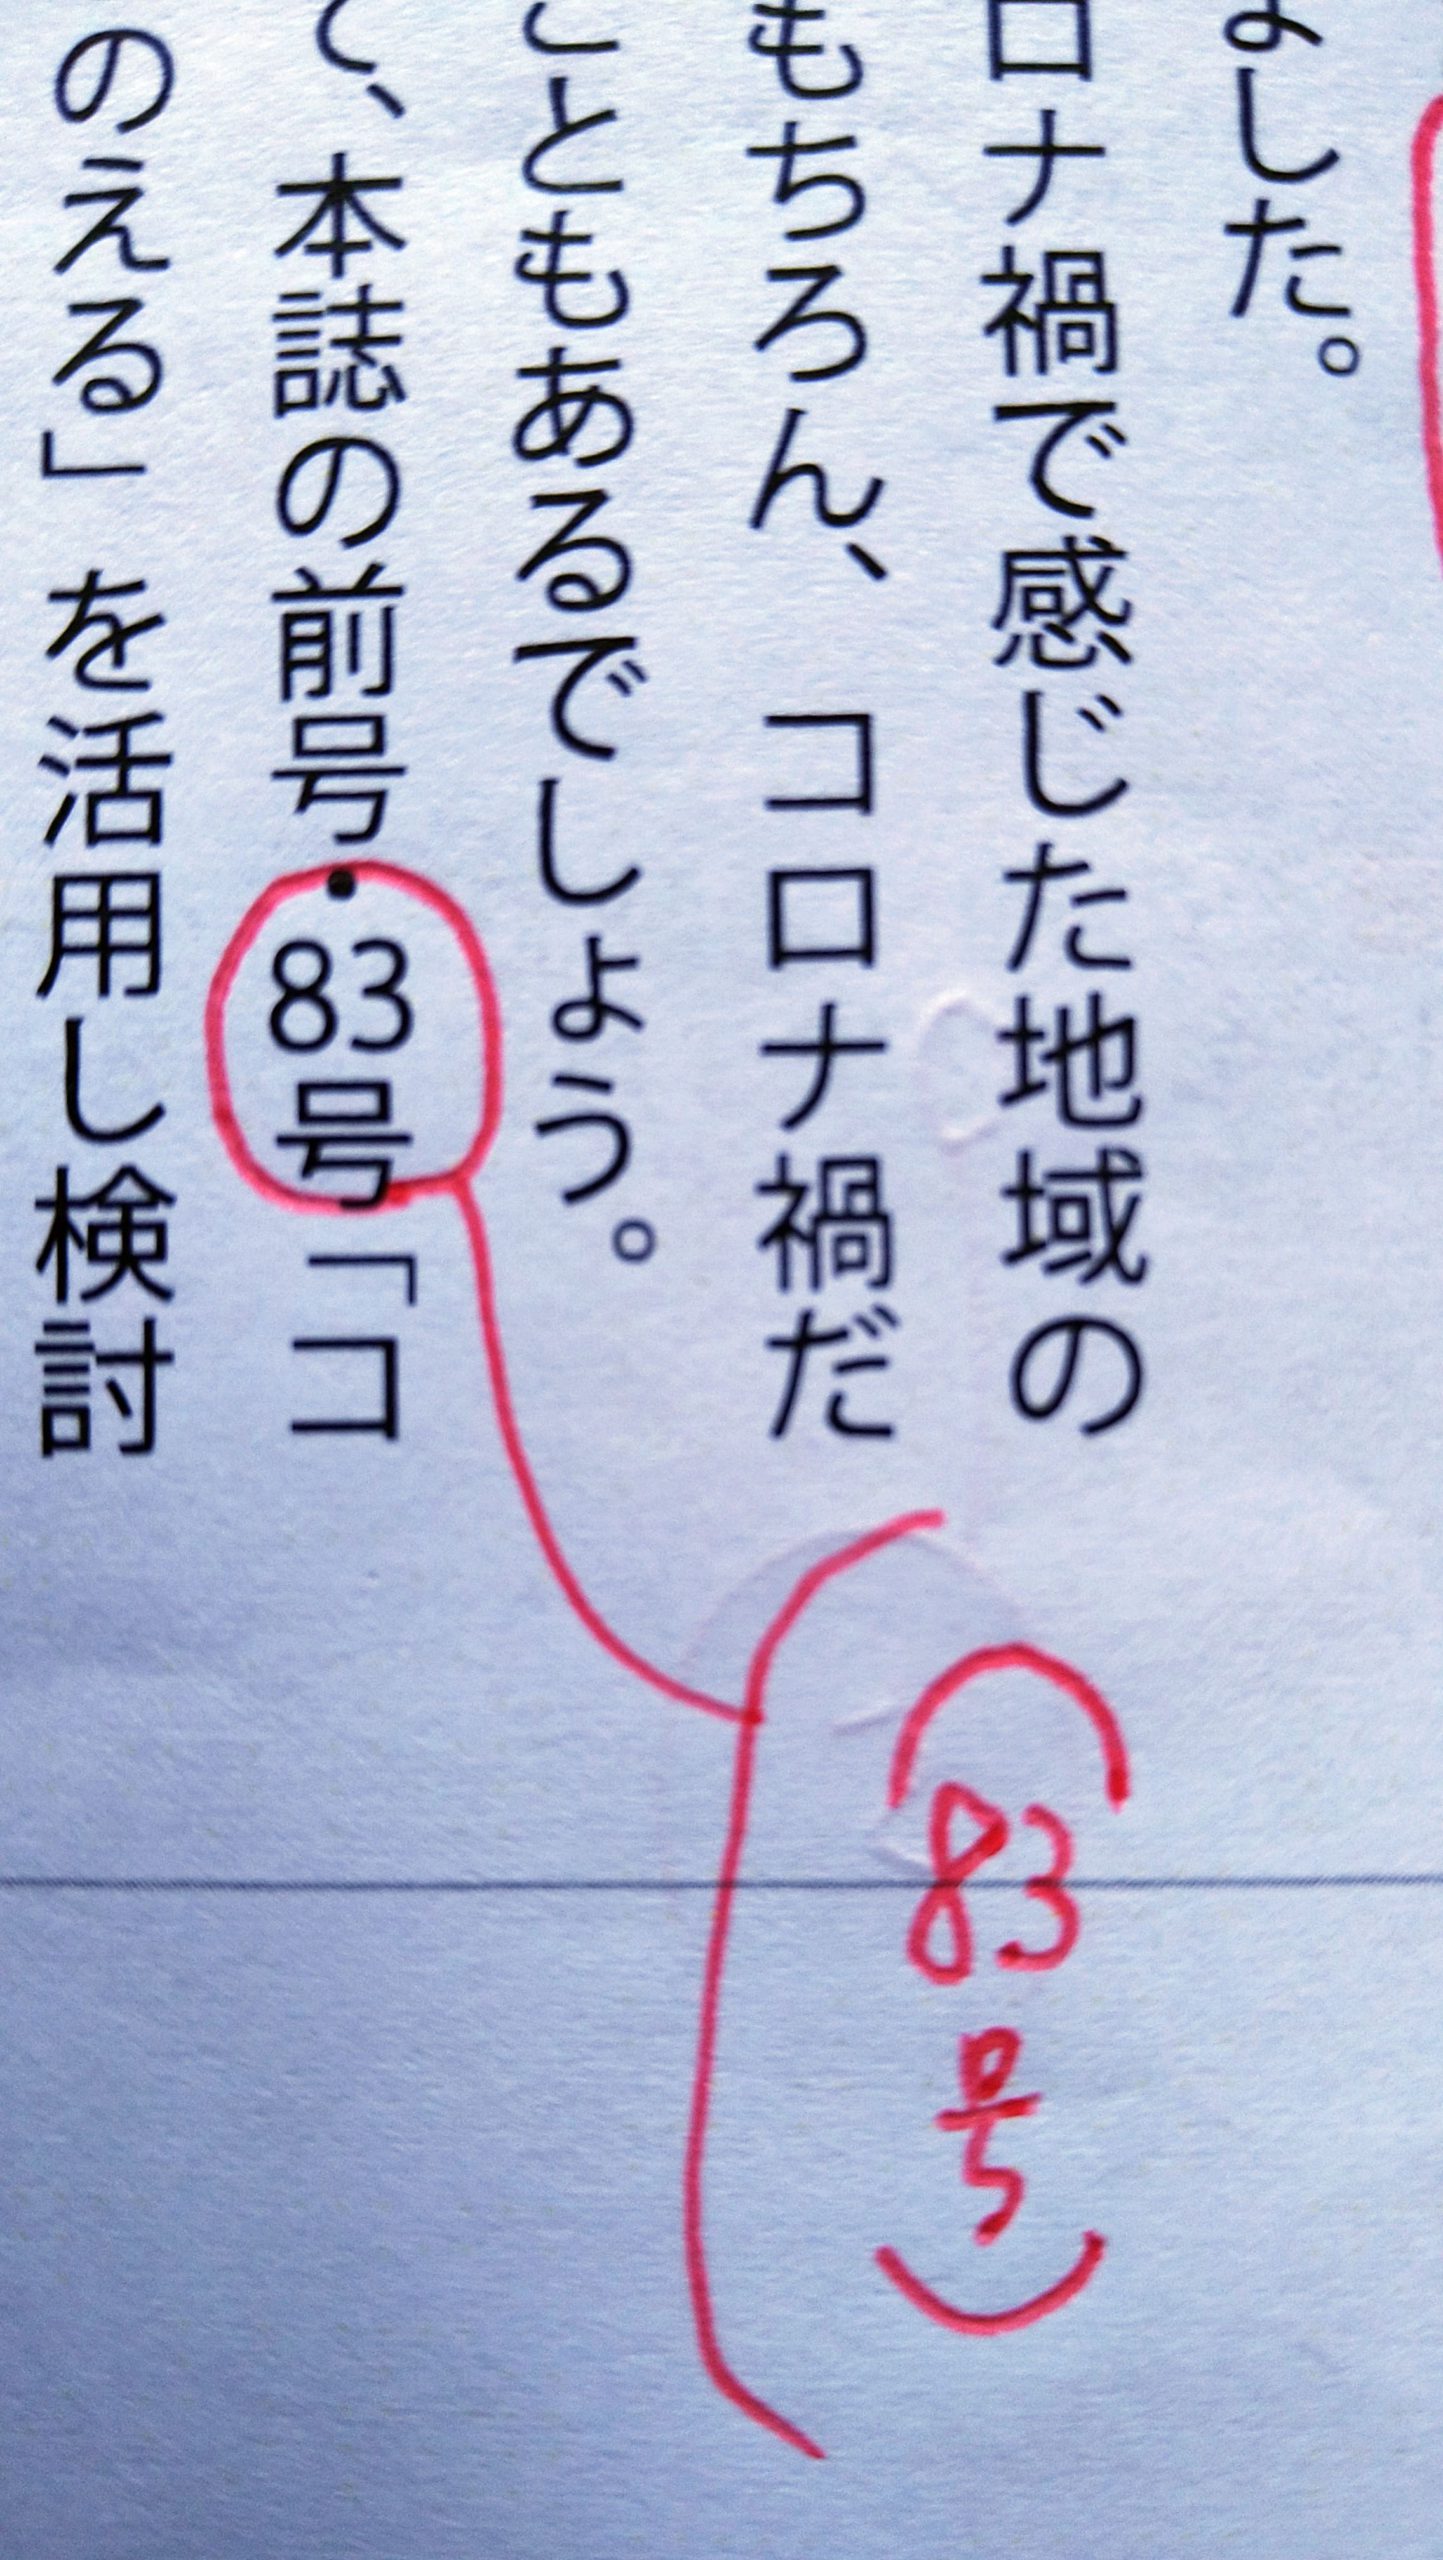 ました。
ロナ禍で感じた地域の
もちろん、コロナ禍だ
こともあるでしょう。
て、本誌の前号・83号「コ
のえる」を活用し検討
(83号)